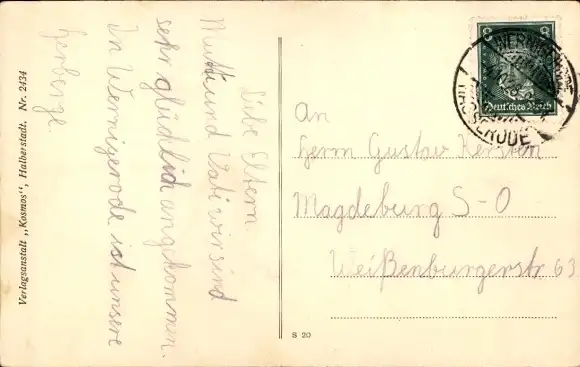 Libe Eltern
Mutti und Vati wir sind
sehr glüdlich angekommen.
In Wernigerode ist unsere
Herberge.
Verlagsanstalt „Kosmos“, Halberstadt, Nr. 2434
S 20
Deutsches Reich
WERNIGERODE
HASSERODE
An
Herrn Gustav Kersten
Magdeburg S-O
Weißenburgerstr. 63